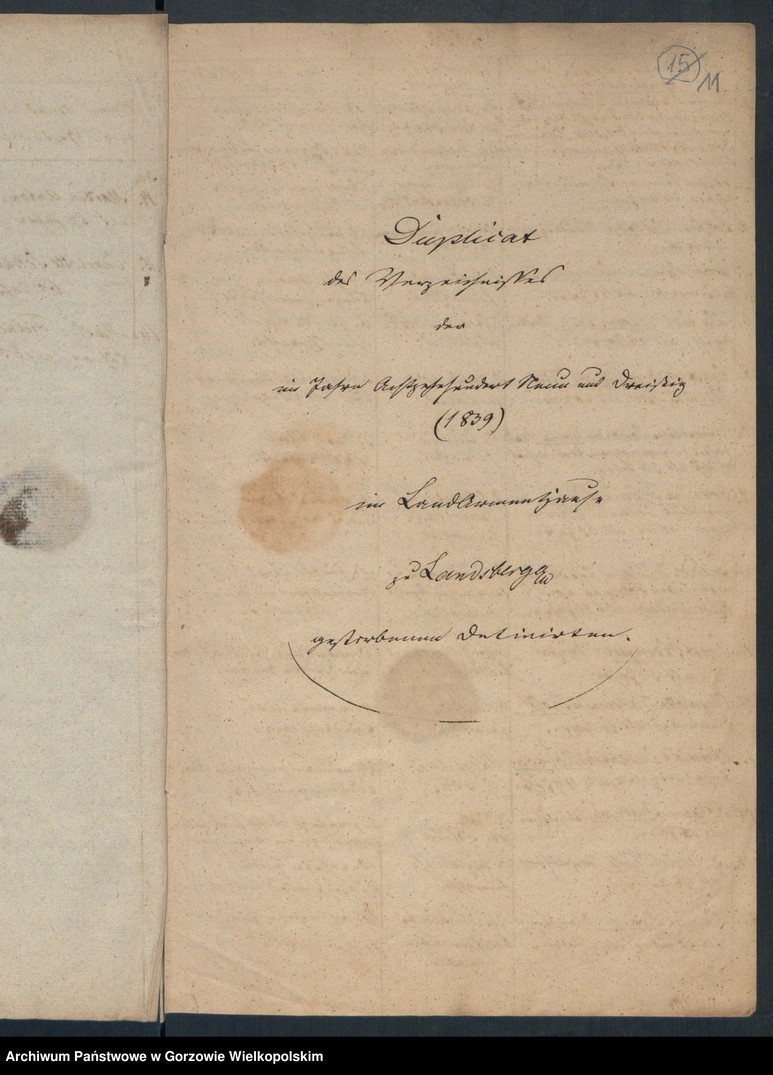 15
11
Duplicat
des Verzeichnisses
der
im Jahre Achtzehnhundert Neun und Dreißig
(1839)
im LandArmenHause
zu Landsberg a/W
gestorbenen Detinirten.
Archiwum Państwowe w Gorzowie Wielkopolskim